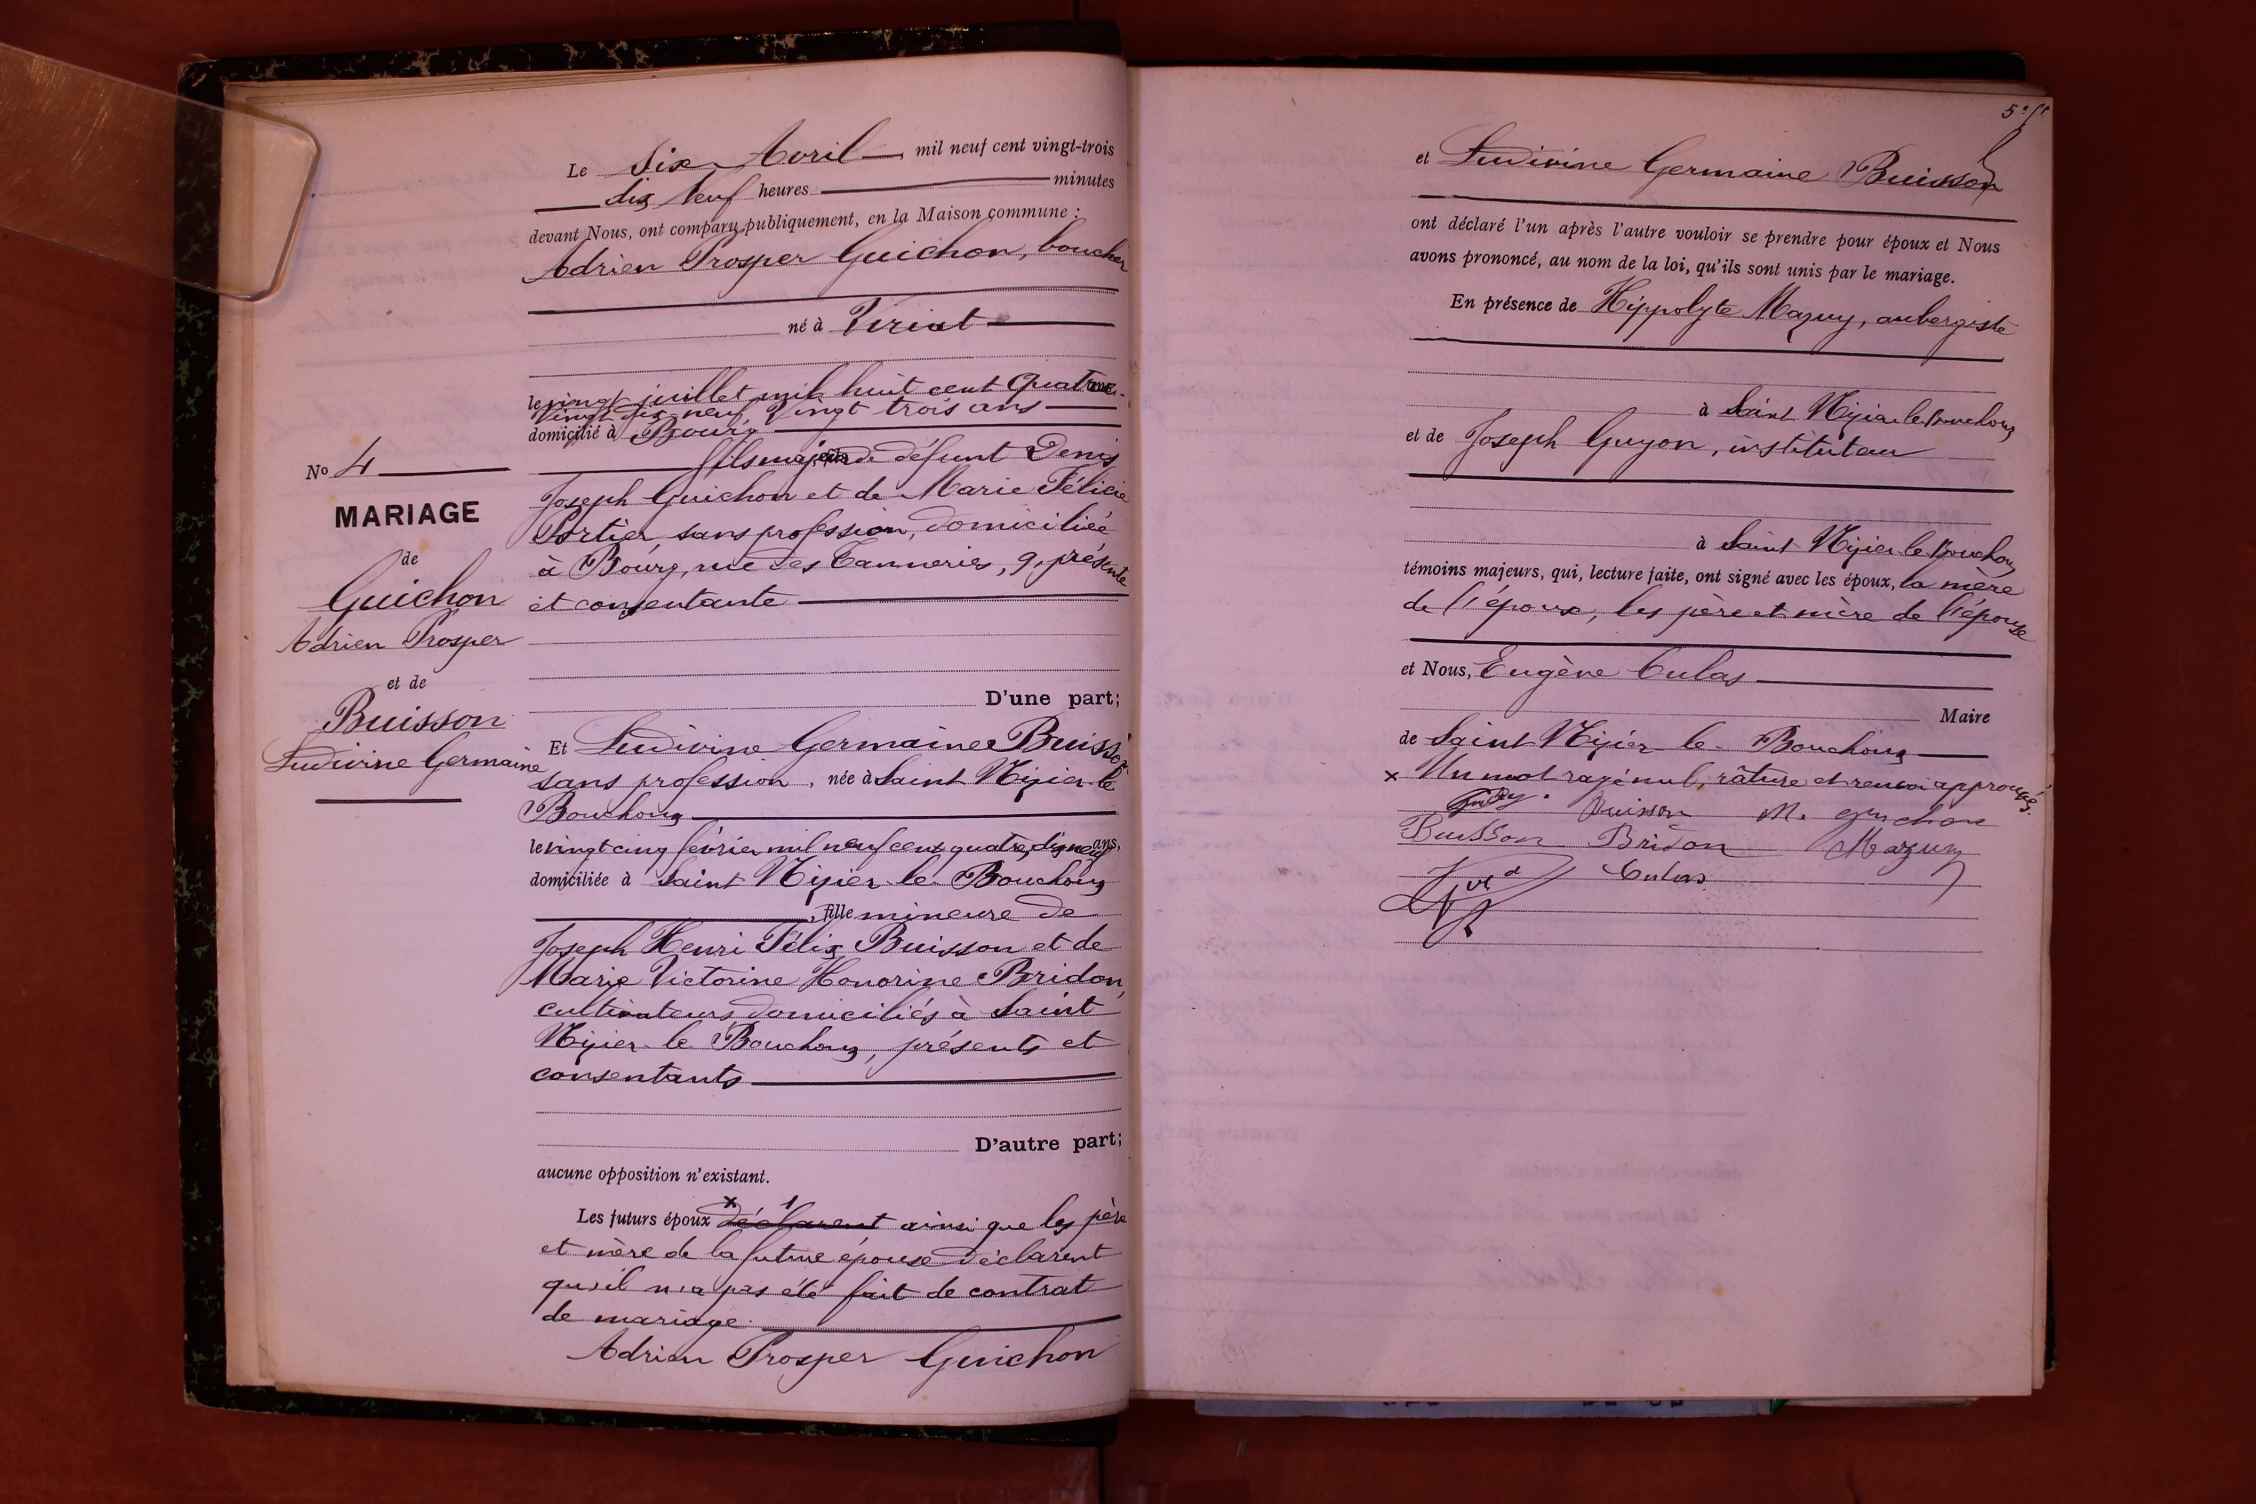 Le Six Avril mil neuf cent vingt-trois
dix neuf heures minutes
devant Nous, ont comparu publiquement, en la Maison commune :
Adrien Prosper Guichon, boucher
né à Viriat
le vingt juillet mil huit cent quatre-
vingt dix neuf, vingt trois ans
domicilié à Bourg
fils majeur de défunt Denis
Joseph Guichon et de Marie Félicie
Sortier, sans profession, domiciliée
à Bourg, rue des Tanneries, 9, présente
et consentante
D'une part;
Et Ludivine Germaine Buisson
sans profession, née à Saint Nizier le
Bouchoux
le vingt cinq février mil neuf cent quatre, dix neuf ans,
domiciliée à Saint Nizier le Bouchoux
, fille mineure de
Joseph Henri Félix Buisson et de
Marie Victorine Honorine Bridon,
cultivateurs domiciliés à Saint
Nizier le Bouchoux, présents et
consentants
D'autre part;
aucune opposition n'existant.
Les futurs époux déclarent ainsi que les père
et mère de la future épouse déclarent
qu'il n'a pas été fait de contrat
de mariage.
Adrien Prosper Guichon
No 4
MARIAGE
de
Guichon
Adrien Prosper
et de
Buisson
Ludivine Germaine
et Ludivine Germaine Buisson
ont déclaré l'un après l'autre vouloir se prendre pour époux et Nous
avons prononcé, au nom de la loi, qu'ils sont unis par le mariage.
En présence de Hippolyte Mazuy, aubergiste
à Saint Nizier le Bouchoux
et de Joseph Guyon, instituteur
à Saint Nizier le Bouchoux
témoins majeurs, qui, lecture faite, ont signé avec les époux, la mère
de l'époux, les père et mère de l'épouse
et Nous, Eugène Culas
Maire
de Saint Nizier le Bouchoux
x Un mot rayé nul, râture et renvoi approuvés.
Buisson M. Guichon
Buisson Bridon Mazuy
Culas